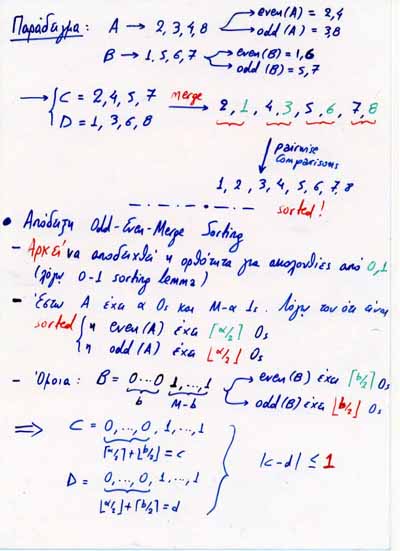 Παράδειγμα: A → 2, 3, 4, 8 → even(A) = 2, 4
→ odd(A) = 3, 8
B → 1, 5, 6, 7 → even(B) = 1, 6
→ odd(B) = 5, 7
→ { C = 2, 4, 5, 7 merge → 2, 1, 4, 3, 5, 6, 7, 8
D = 1, 3, 6, 8
↓ pairwise
comparisons
1, 2, 3, 4, 5, 6, 7, 8
sorted!
• Απόδειξη Odd-Even-Merge Sorting
- Αρκεί να αποδειχθεί η ορθότητα για ακολουθίες από 0,1
(λόγω 0-1 sorting lemma)
- Έστω A έχει α 0s και M-α 1s. Λόγω του ότι είναι
sorted { η even(A) έχει ⌈α/2⌉ 0s
η odd(A) έχει ⌊α/2⌋ 0s
- Όμοια: B = 0...0 1,...,1 → even(B) έχει ⌈b/2⌉ 0s
b M-b → odd(B) έχει ⌊b/2⌋ 0s
⇒ C = 0,...,0, 1,...,1
⌈α/2⌉+⌊b/2⌋=c
|c-d| ≤ 1
D = 0,...,0, 1,...,1
⌊α/2⌋+⌈b/2⌉=d